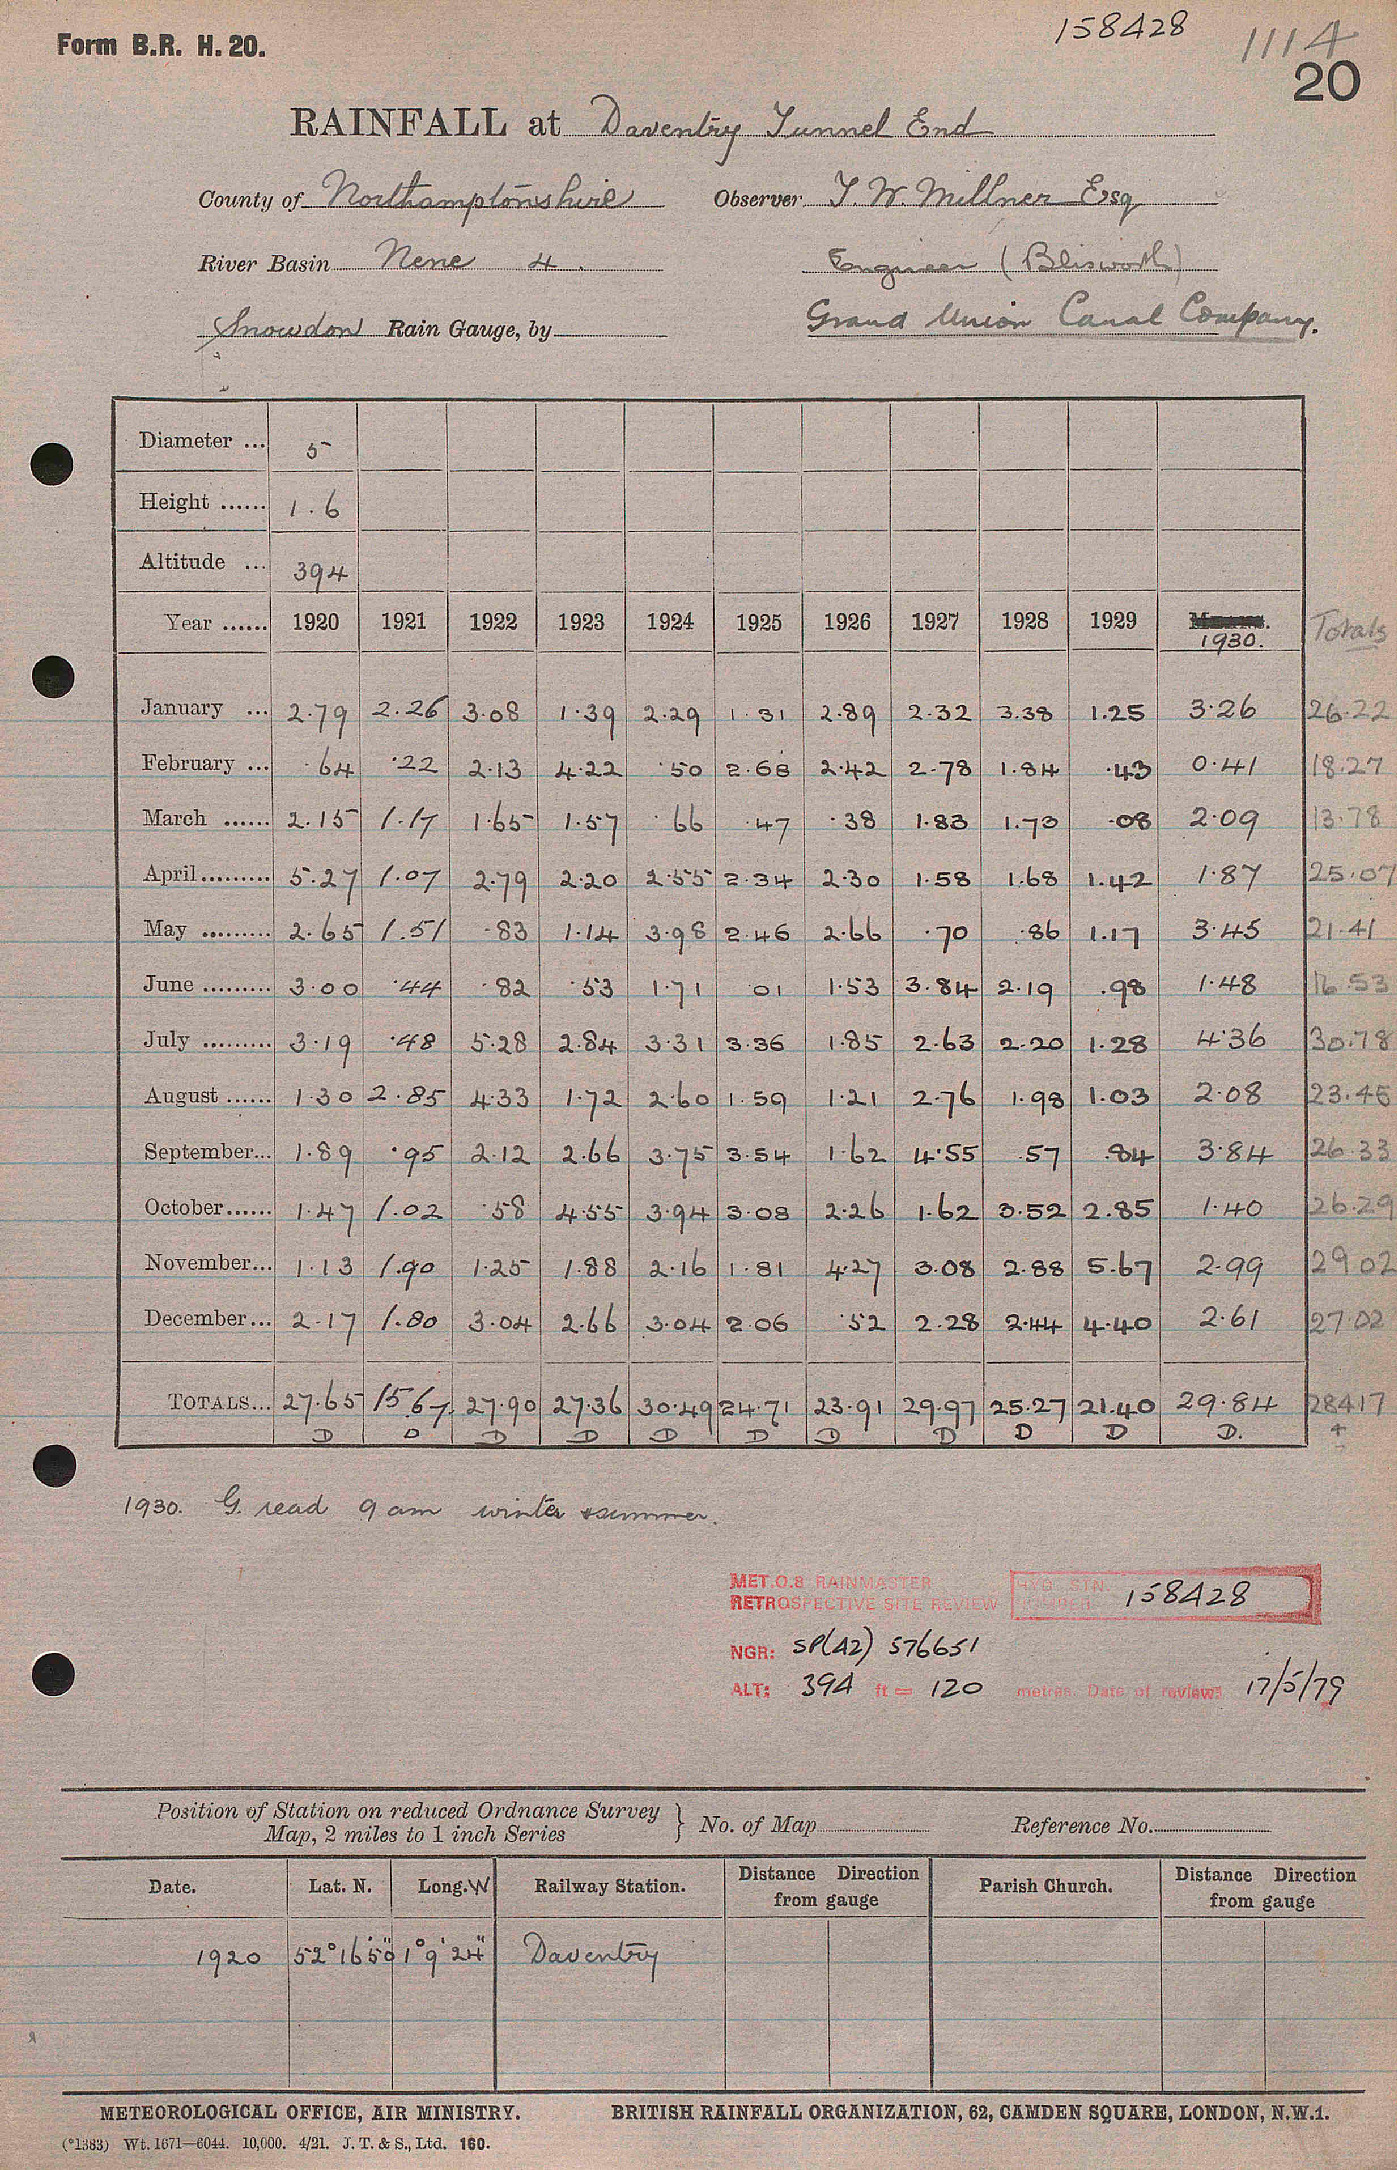 158428
1114
Form B.R. H. 20.
20
RAINFALL at Daventry Tunnel End
County of Northamptonshire Observer T. W. Millner Esq
River Basin Nene 4. Engineer (Blisworth)
Snowdon Rain Gauge, by Grand Union Canal Company.
Diameter ... 5
Height ...... 1.6
Altitude ... 394
Year ...... 1920 1921 1922 1923 1924 1925 1926 1927 1928 1929 1930. Totals
January ... 2.79 2.26 3.08 1.39 2.29 1.31 2.89 2.32 3.38 1.25 3.26 26.22
February ... .64 .22 2.13 4.22 .50 2.68 2.42 2.78 1.84 .43 0.41 18.27
March ...... 2.15 1.17 1.65 1.57 .66 .47 .38 1.83 1.73 .08 2.09 13.78
April......... 5.27 1.07 2.79 2.20 2.55 2.34 2.30 1.58 1.68 1.42 1.87 25.07
May ......... 2.65 1.51 .83 1.14 3.98 2.46 2.66 .70 .86 1.17 3.45 21.41
June ......... 3.00 .44 .82 .53 1.71 .01 1.53 3.84 2.19 .98 1.48 16.53
July ......... 3.19 .48 5.28 2.84 3.31 3.36 1.85 2.63 2.20 1.28 4.36 30.78
August ...... 1.30 2.85 4.33 1.72 2.60 1.59 1.21 2.76 1.98 1.03 2.08 23.45
September... 1.89 .95 2.12 2.66 3.75 3.54 1.62 4.55 .57 .84 3.84 26.33
October...... 1.47 1.02 .58 4.55 3.94 3.08 2.26 1.62 3.52 2.85 1.40 26.29
November... 1.13 1.90 1.25 1.88 2.16 1.81 4.27 3.08 2.88 5.67 2.99 29.02
December... 2.17 1.80 3.04 2.66 3.04 2.06 .52 2.28 2.44 4.40 2.61 27.02
TOTALS... 27.65 15.67 27.90 27.36 30.49 24.71 23.91 29.97 25.27 21.40 29.84 284.17
D D D D D D D D D D D. +
1930. G. read 9 am winter & summer.
MET.O.8 RAINMASTER
RETROSPECTIVE SITE REVIEW HYD. STN. NUMBER 158428
NGR: SP(42) 576651
ALT: 394 ft = 120 metres. Date of review: 17/5/79
Position of Station on reduced Ordnance Survey
Map, 2 miles to 1 inch Series } No. of Map Reference No.
Date. Lat. N. Long. W Railway Station. Distance Direction from gauge Parish Church. Distance Direction from gauge
1920 52° 16' 50" 1° 9' 24" Daventry
METEOROLOGICAL OFFICE, AIR MINISTRY. BRITISH RAINFALL ORGANIZATION, 62, CAMDEN SQUARE, LONDON, N.W.1.
(*1383) Wt. 1671—6044. 10,000. 4/21. J. T. & S., Ltd. 160.